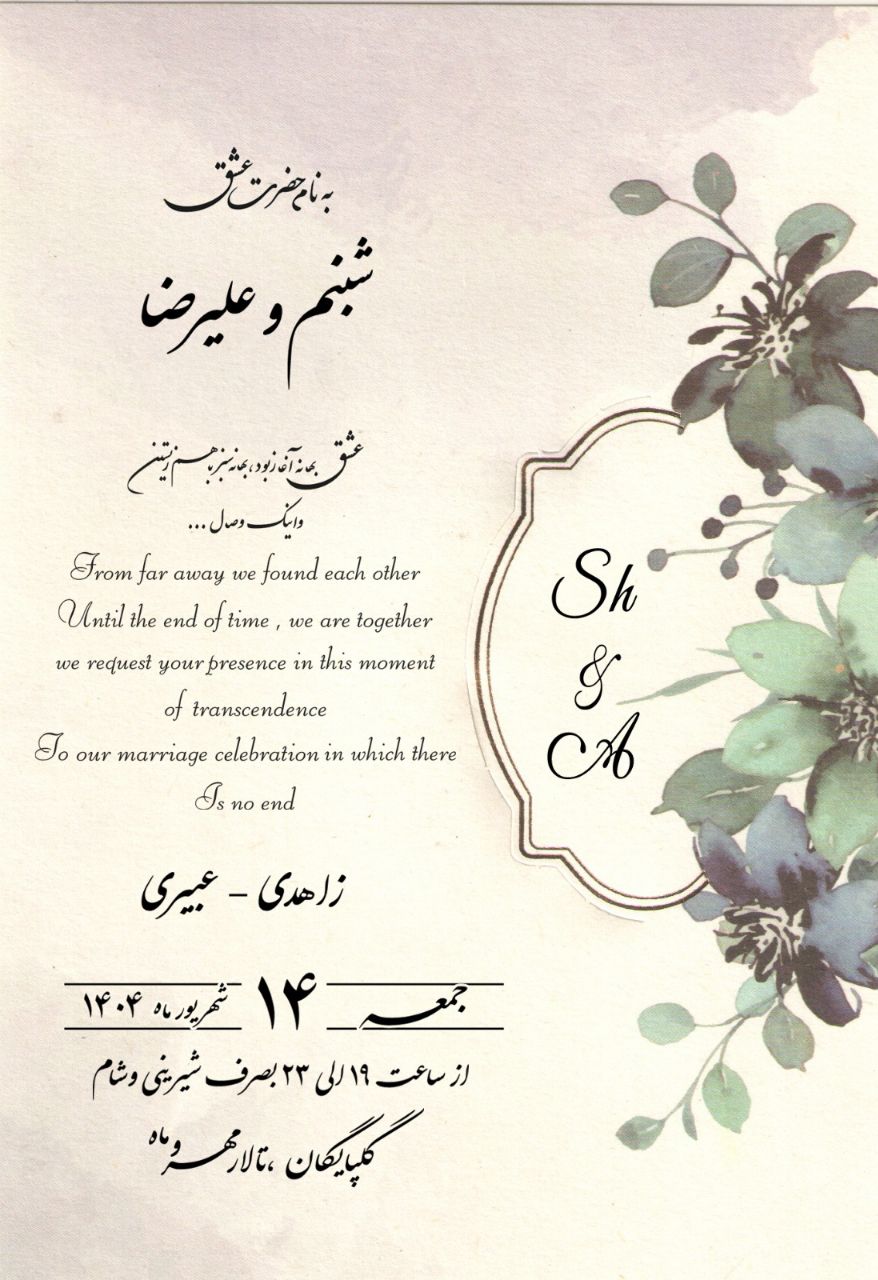 به نام حضرت عشق
شبنم و علیرضا
عشق بهانه آغاز بود، بهانه سبز با هم زیستن
واینک وصال ...
From far away we found each other
Until the end of time , we are together
we request your presence in this moment
of transcendence
To our marriage celebration in which there
Is no end
زاهدی - عبیری
جمعه ۱۴ شهریور ماه ۱۴۰۴
از ساعت ۱۹ الی ۲۳ بصرف شیرینی وشام
گلپایگان ،تالار مهر و ماه
Sh
&
A